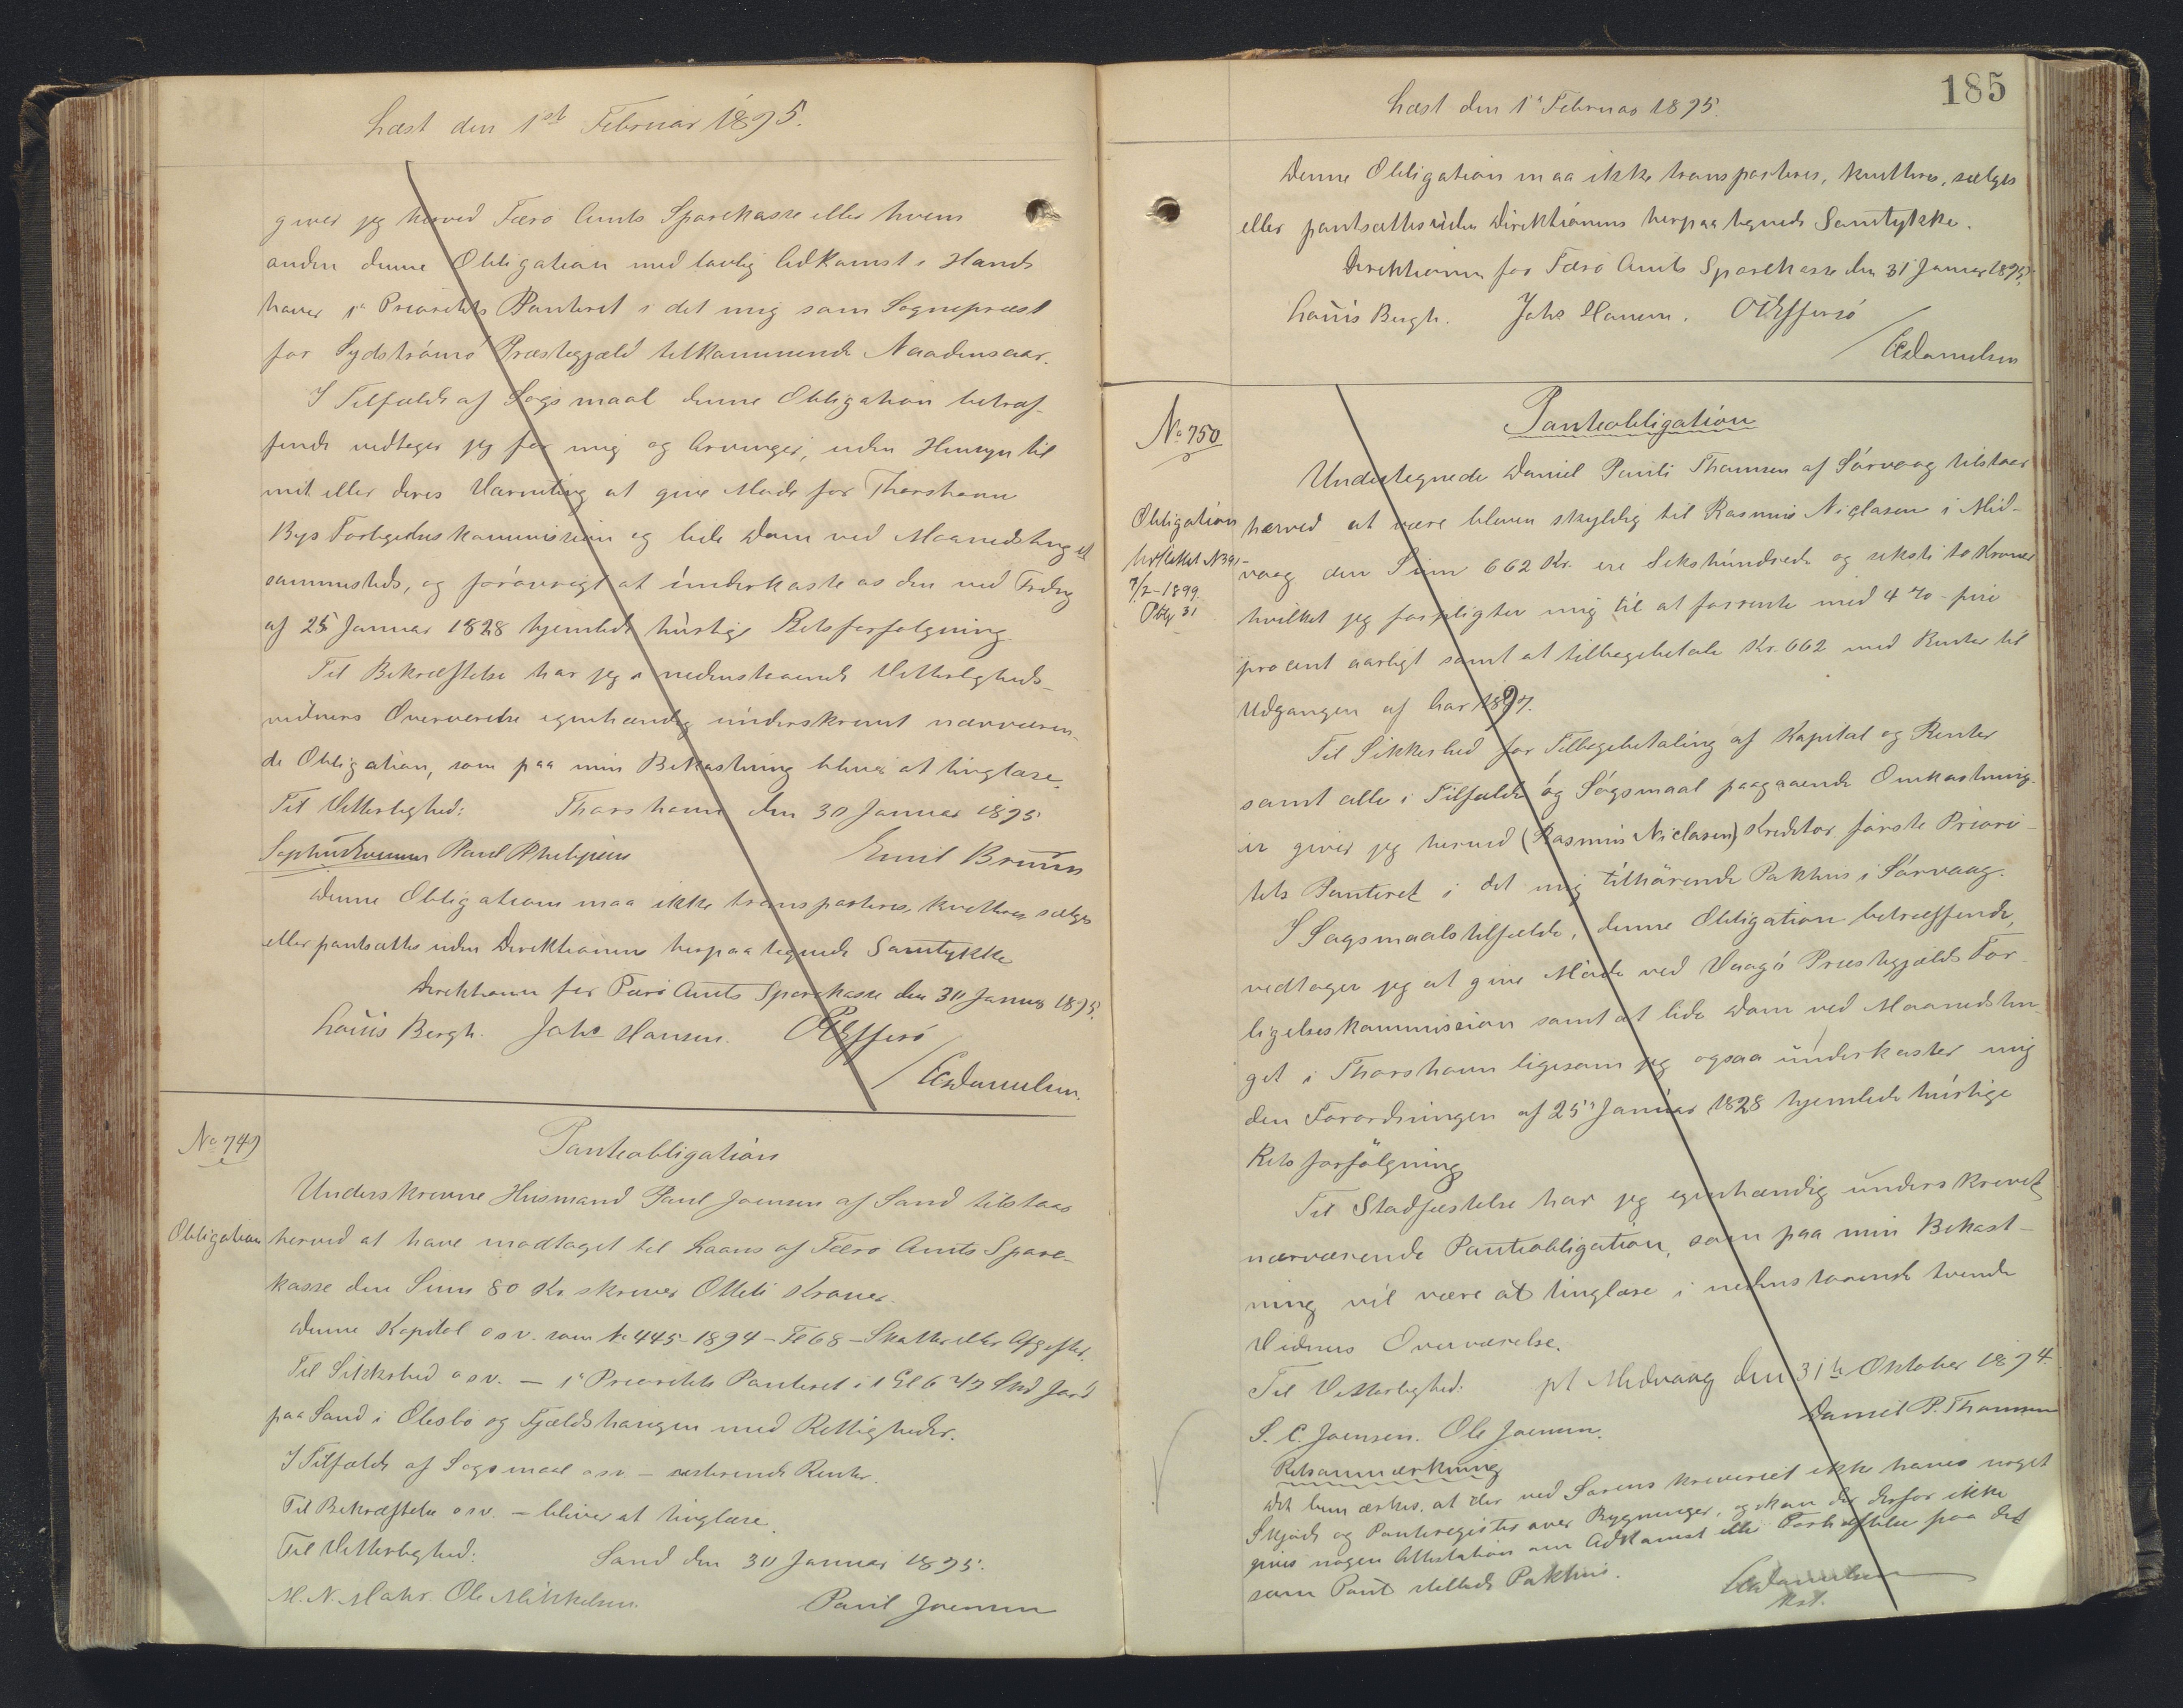 Læst den 1ste Februar 1895.
giver jeg herved Færø Amts Sparekasse eller hvem
anden denne Obligation med lovlig Adkomst i Hænde
haver 1ste Prioritets Panteret i det mig som Sognepræst
for Sydstrømø Præstegjæld tilkommende Naadensaar.
I Tilfælde af Søgsmaal denne Obligation betræf-
fende vedtager jeg for mig og Arvinger, uden Hensyn til
mit eller deres Værneting at give Møde for Thorshavn
Bys Forligelseskommission og lide Dom ved Maanedstinget
sammesteds, og forøvrigt at underkaste os den ved Frdng
af 25 Januar 1828 hjemlede hurtige Retsforfølgning.
Til Bekræftelse har jeg i nedenstaaende Vitterligheds-
vidners Overværelse egenhændig underskrevet nærværen-
de Obligation, som paa min Bekostning bliver at tinglæse.
Til Vitterlighed: Thorshavn den 30 Januar 1895
Poul Philipsen Emil Bruun
Denne Obligation maa ikke transporteres, kvitteres, sælges
eller pantsættes uden Direktionens herpaa tegnede Samtykke
Direktionen for Færø Amts Sparekasse den 30 Januar 1895.
Louis Bergh. Johs Hansen. O Effersø
/ CADanielsen.
No 749
Panteobligation
Underskrevne Husmand Poul Joensen af Sand tilstaar
Obligation
herved at have modtaget til Laans af Færø Amts Spare-
kasse den Sum 80 Kr. skriver Otteti Kroner.
Denne Kapital osv. som No 445 1894 – Fol 68 – Skatter eller Afgifter.
Til Sikkerhed osv. – 1ste Prioritets Panteret i 1 Gl 6 2/7 Skd Jord
paa Sand i Olesbo og Fjældshaugen med Rettigheder.
I Tilfælde af Søgsmaal osv. – resterende Renter.
Til Bekræftelse osv. – bliver at tinglæse.
Til Vitterlighed: Sand den 30 Januar 1895.
M. N. Mohr. Ole Mikkelsen. Poul Joensen
185
Læst den 1ste Februar 1895.
Denne Obligation maa ikke transporteres, kvitteres, sælges
eller pantsættes uden Direktionens herpaa tegnede Samtykke.
Direktionen for Færø Amts Sparekasse den 31 Januar 1895.
Louis Bergh. Johs Hansen. O Effersø
/ CADanielsen
No 750
Panteobligation
Undertegnede Daniel Pauli Thomsen af Sørvaag tilstaar
Obligation
herved at være bleven skyldig til Rasmus Niclasen i Mid-
Udslettet N 391-
7/2-1899.
vaag den Sum 662 Kr. er Sekshundrede og seksti to Kroner
hvilket jeg forpligter mig til at forrente med 4 % fire
procent aarligt samt at tilbagebetale Kr. 662 med Renter til
Udgangen af Aar 1897.
Til Sikkerhed for Tilbagebetaling af Kapital og Renter
samt alle i Tilfælde og Søgsmaal paagaaende Omkostning-
er giver jeg herved (Rasmus Niclasen) Kreditor første Priori-
tets Panteret i det mig tilhørende Pakhus i Sørvaag.
I Søgsmaalstilfælde, denne Obligation betræffende,
vedtager jeg at give Møde ved Vaagø Præstegjælds For-
ligelseskommission samt at lide Dom ved Maanedstin-
get i Thorshavn ligesom jeg ogsaa underkaster mig
den Forordningen af 25' Januar 1828 hjemlede hurtige
Retsforfølgning
Til Stadfæstelse har jeg egenhændig underskrevet
nærværende Panteobligation, som paa min Bekost-
ning vil være at tinglæse i nedenstaaende tvende
Vidners Overværelse.
Til Vitterlighed: pt Midvaag den 31te Oktober 1894.
S. C. Joensen. Ole Joensen. Daniel P. Thomsen
Retsanmærkning
Det bemærkes, at der ved Sorenskriveriet ikke haves noget
Skjøde og Panteregister over Bygninger, og kan der derfor ikke
gives nogen Attestation om Adkomst eller Forhæftelse paa det
som Pant stillede Pakhus. CADanielsen
kst.